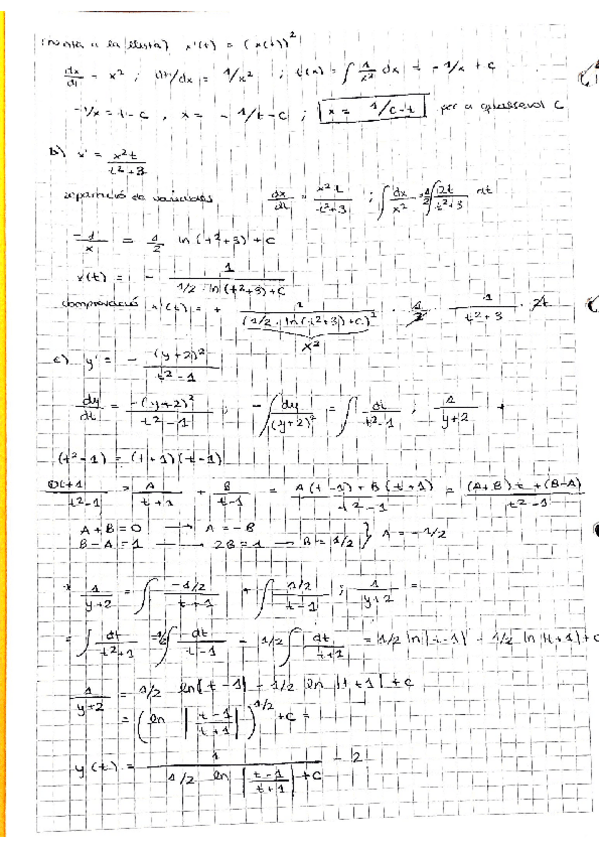 a la llista) x'(t) = (x(t))²
dx/dt = x² ; dt/dx = 1/x² ; t(x) = ∫ 1/x² dx = -1/x + C
-1/x = t - C , x = - 1/t-C ; x = 1/C-t per a qualsevol C
b) x' = x²t / t²+3
separació de variables dx/dt = x²t / t²+3 ; ∫ dx/x² = 1/2 ∫ 2t / t²+3 dt
-1/x = 1/2 ln(t²+3) + C
x(t) = - 1 / 1/2 · ln(t²+3)+C
comprovació x'(t) = + 1 / (1/2 · ln(t²+3)+C)² · 1/2 · 1 / t²+3 · 2t
x²
c) y' = - (y+2)² / t²-1
dy/dt = -(y+2)² / t²-1 ; -∫ dy/(y+2)² = ∫ dt / t²-1 ; 1/y+2
(t²-1) = (t+1)(t-1)
0t+1 / t²-1 = A / t+1 + B / t-1 = A(t-1)+B(t+1) / t²-1 = (A+B)t+(B-A) / t²-1
A+B=0 → A=-B
B-A=1 → 2B=1 → B=1/2 } A=-1/2
* 1/y+2 = ∫ -1/2 / t+1 + ∫ 1/2 / t-1 ; 1/y+2 =
= ∫ dt / t²+1 = 1/2 ∫ dt / t-1 - 1/2 ∫ dt / t+1 = 1/2 ln|t-1| - 1/2 ln|t+1| + C
1/y+2 = 1/2 ln|t-1| - 1/2 ln|t+1| + C
= (ln |t-1 / t+1|)^1/2 + C =
y(t) = 1 / 1/2 ln |t-1 / t+1| + C - 2